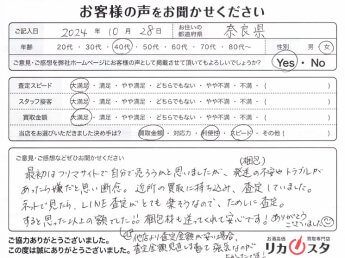 お客様の声をお聞かせください
ご記入日 2024年 10月 28日 お住いの都道府県 奈良県
年齢 20代・30代・40代・50代・60代・70代・80代以上 性別 男・女
ご意見・ご感想を弊社ホームページにお客様の声として掲載させて頂いてもよろしいでしょうか? Yes・No
査定スピード 大満足・満足・やや満足・どちらでもない・やや不満・不満・( )
スタッフ接客 大満足・満足・やや満足・どちらでもない・やや不満・不満・( )
買取金額 大満足・満足・やや満足・どちらでもない・やや不満・不満・( )
当店をお選びいただきました決め手は? 買取金額・対応力・利便性・スピード・その他( )
ご意見・ご感想などぜひお聞かせください
最初はフリマサイトで自分で売ろうかと思いましたが、発送の不安やトラブルが
あったら嫌だと思い断念。近所の買取に持ち込み、査定していました。
ネットで見たら、LINE査定がとても楽そうなので、ためしに査定。
すると思った以上の額でした!!梱包材も送ってくれて安心です!ありがとう
ございました
ご協力ありがとうございました。
この度は誠にありがとうございました。
他店より査定金額が安い場合、
お酒高価 買取専門店
リカスタ